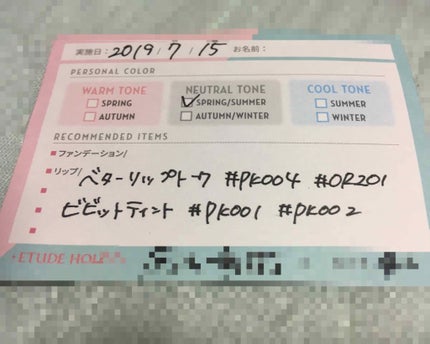 実施日: 2019/7/15 お名前:
PERSONAL COLOR
WARM TONE
SPRING
AUTUMN
NEUTRAL TONE
SPRING/SUMMER
AUTUMN/WINTER
COOL TONE
SUMMER
WINTER
RECOMMENDED ITEMS
ファンデーション/
リップ/ ベターリップトーク #PK004 #OR201
ビビットティント #PK001 #PK002
ETUDE